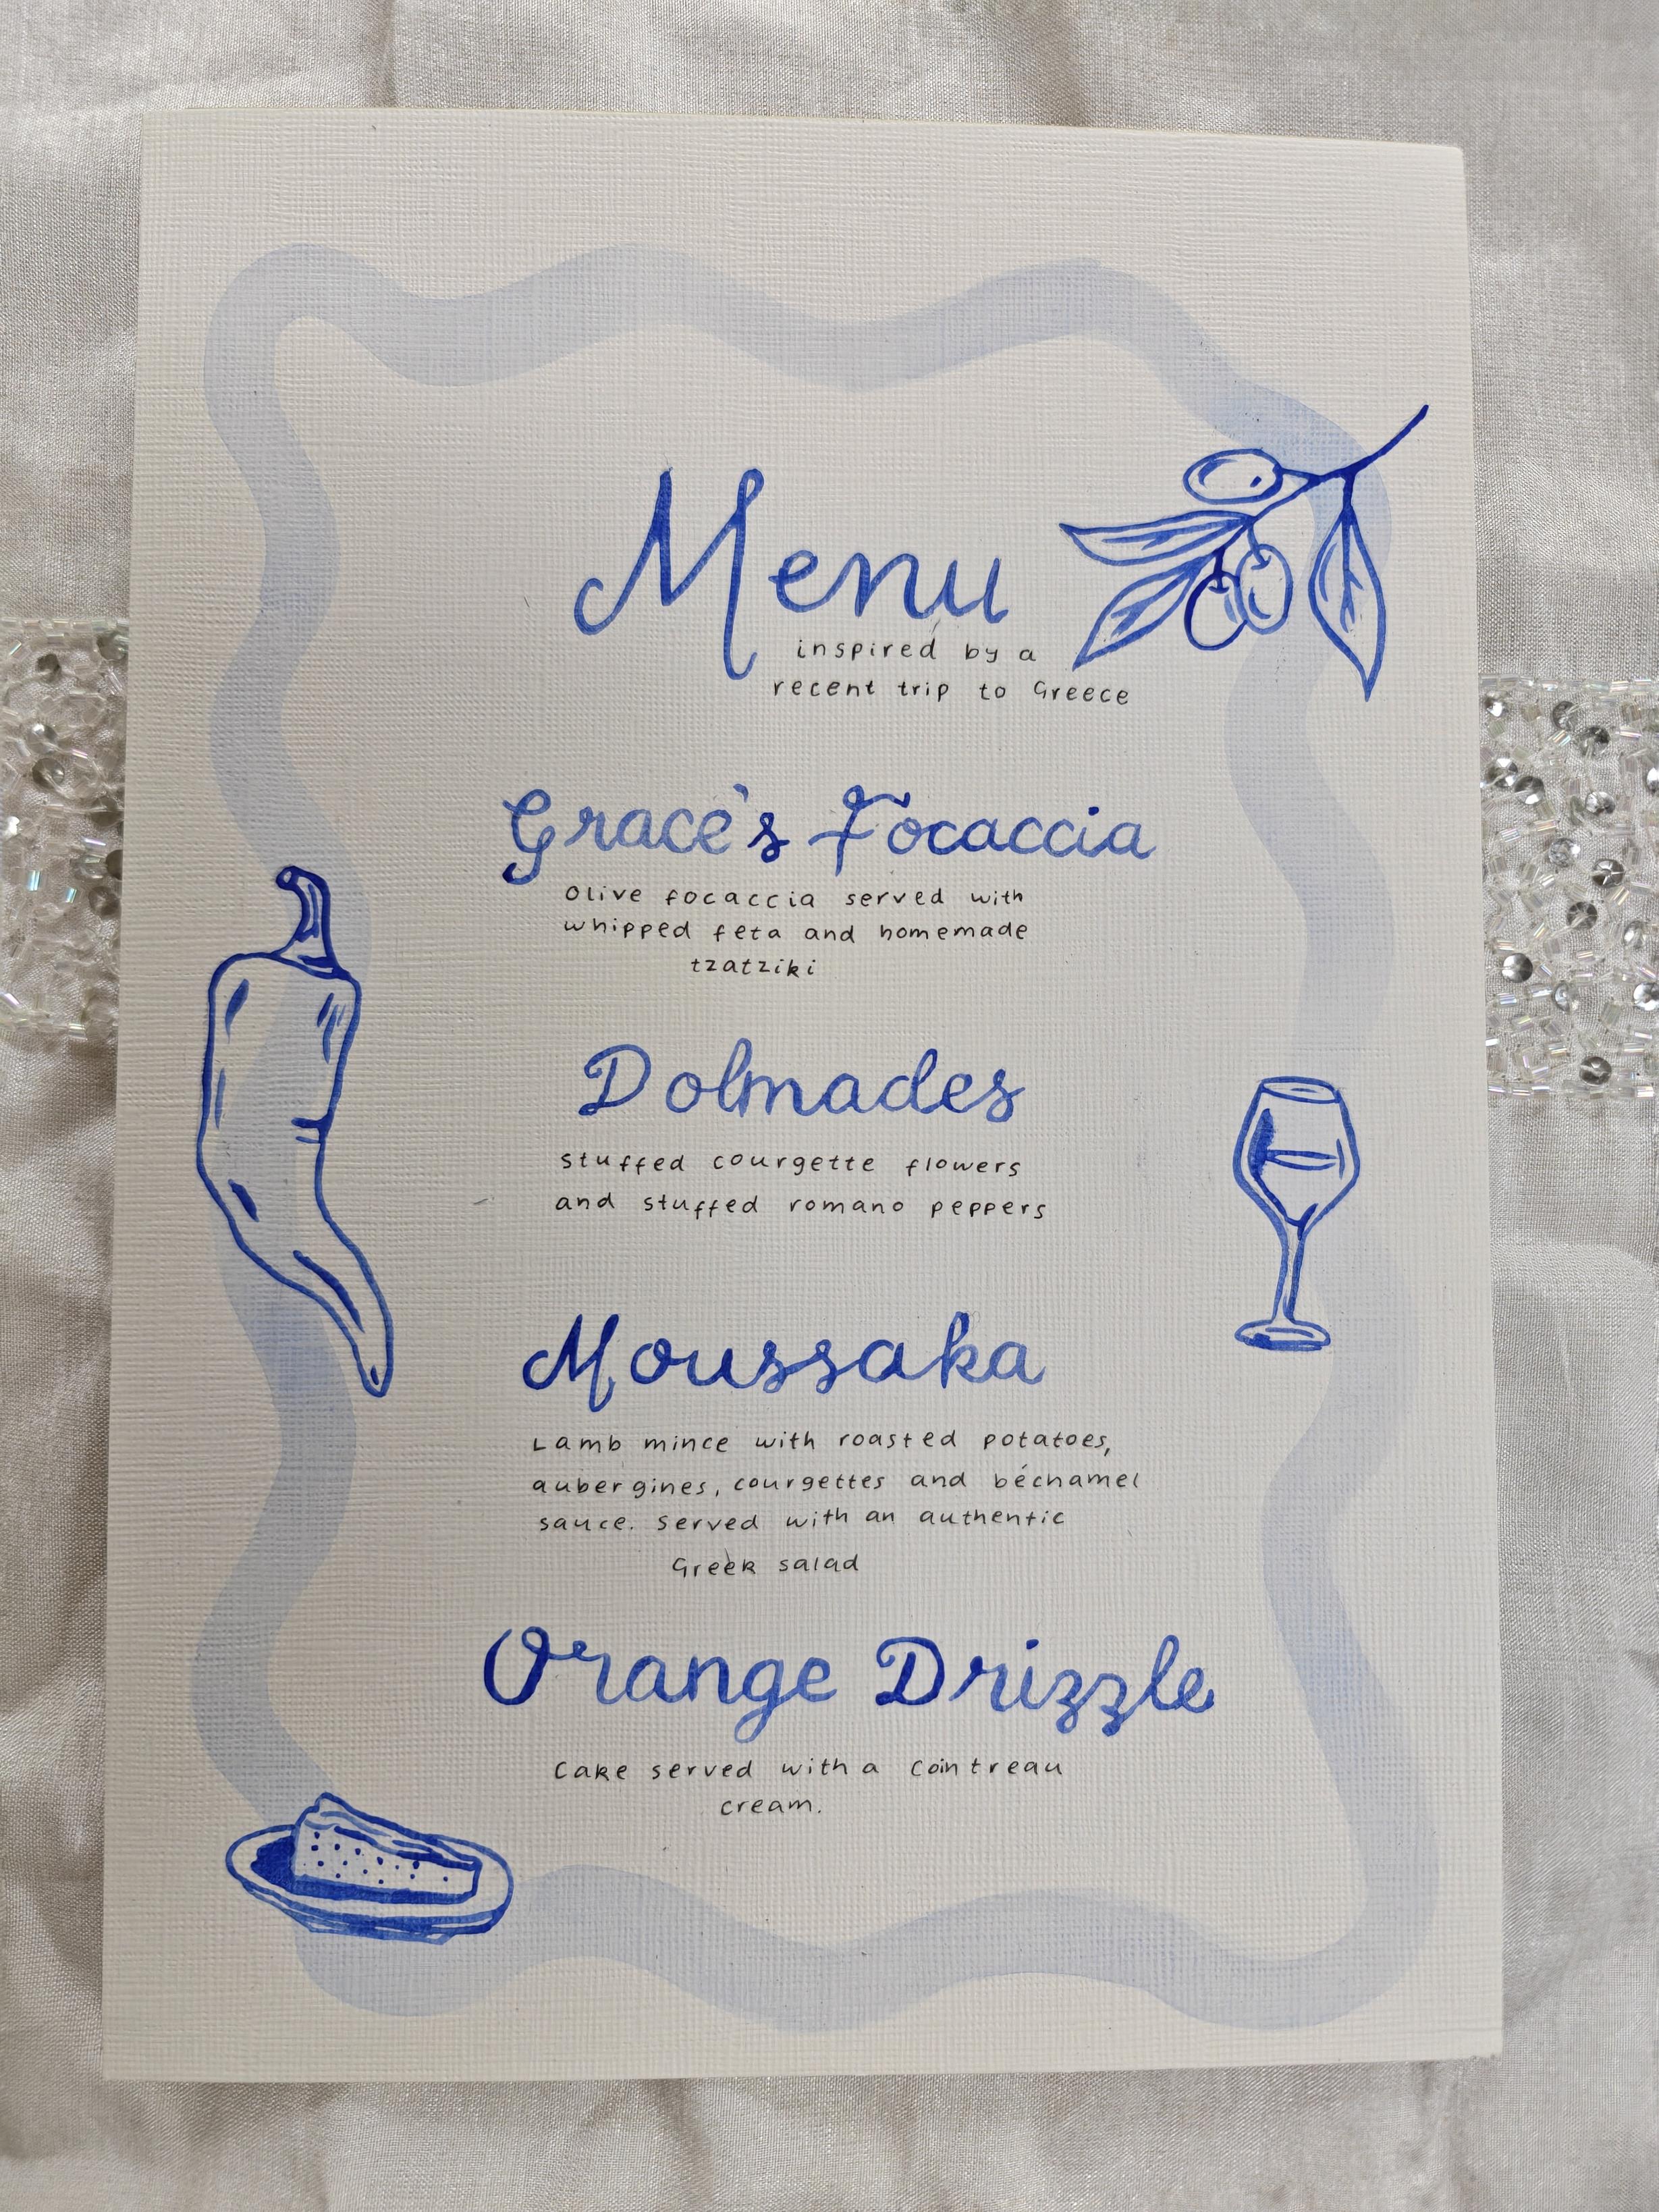 Menu
inspired by a
recent trip to Greece
Grace's Focaccia
Olive focaccia served with
whipped feta and homemade
tzatziki
Dolmades
stuffed courgette flowers
and stuffed romano peppers
Moussaka
Lamb mince with roasted potatoes,
aubergines, courgettes and béchamel
sauce. Served with an authentic
Greek salad
Orange Drizzle
Cake served with a Cointreau
cream.